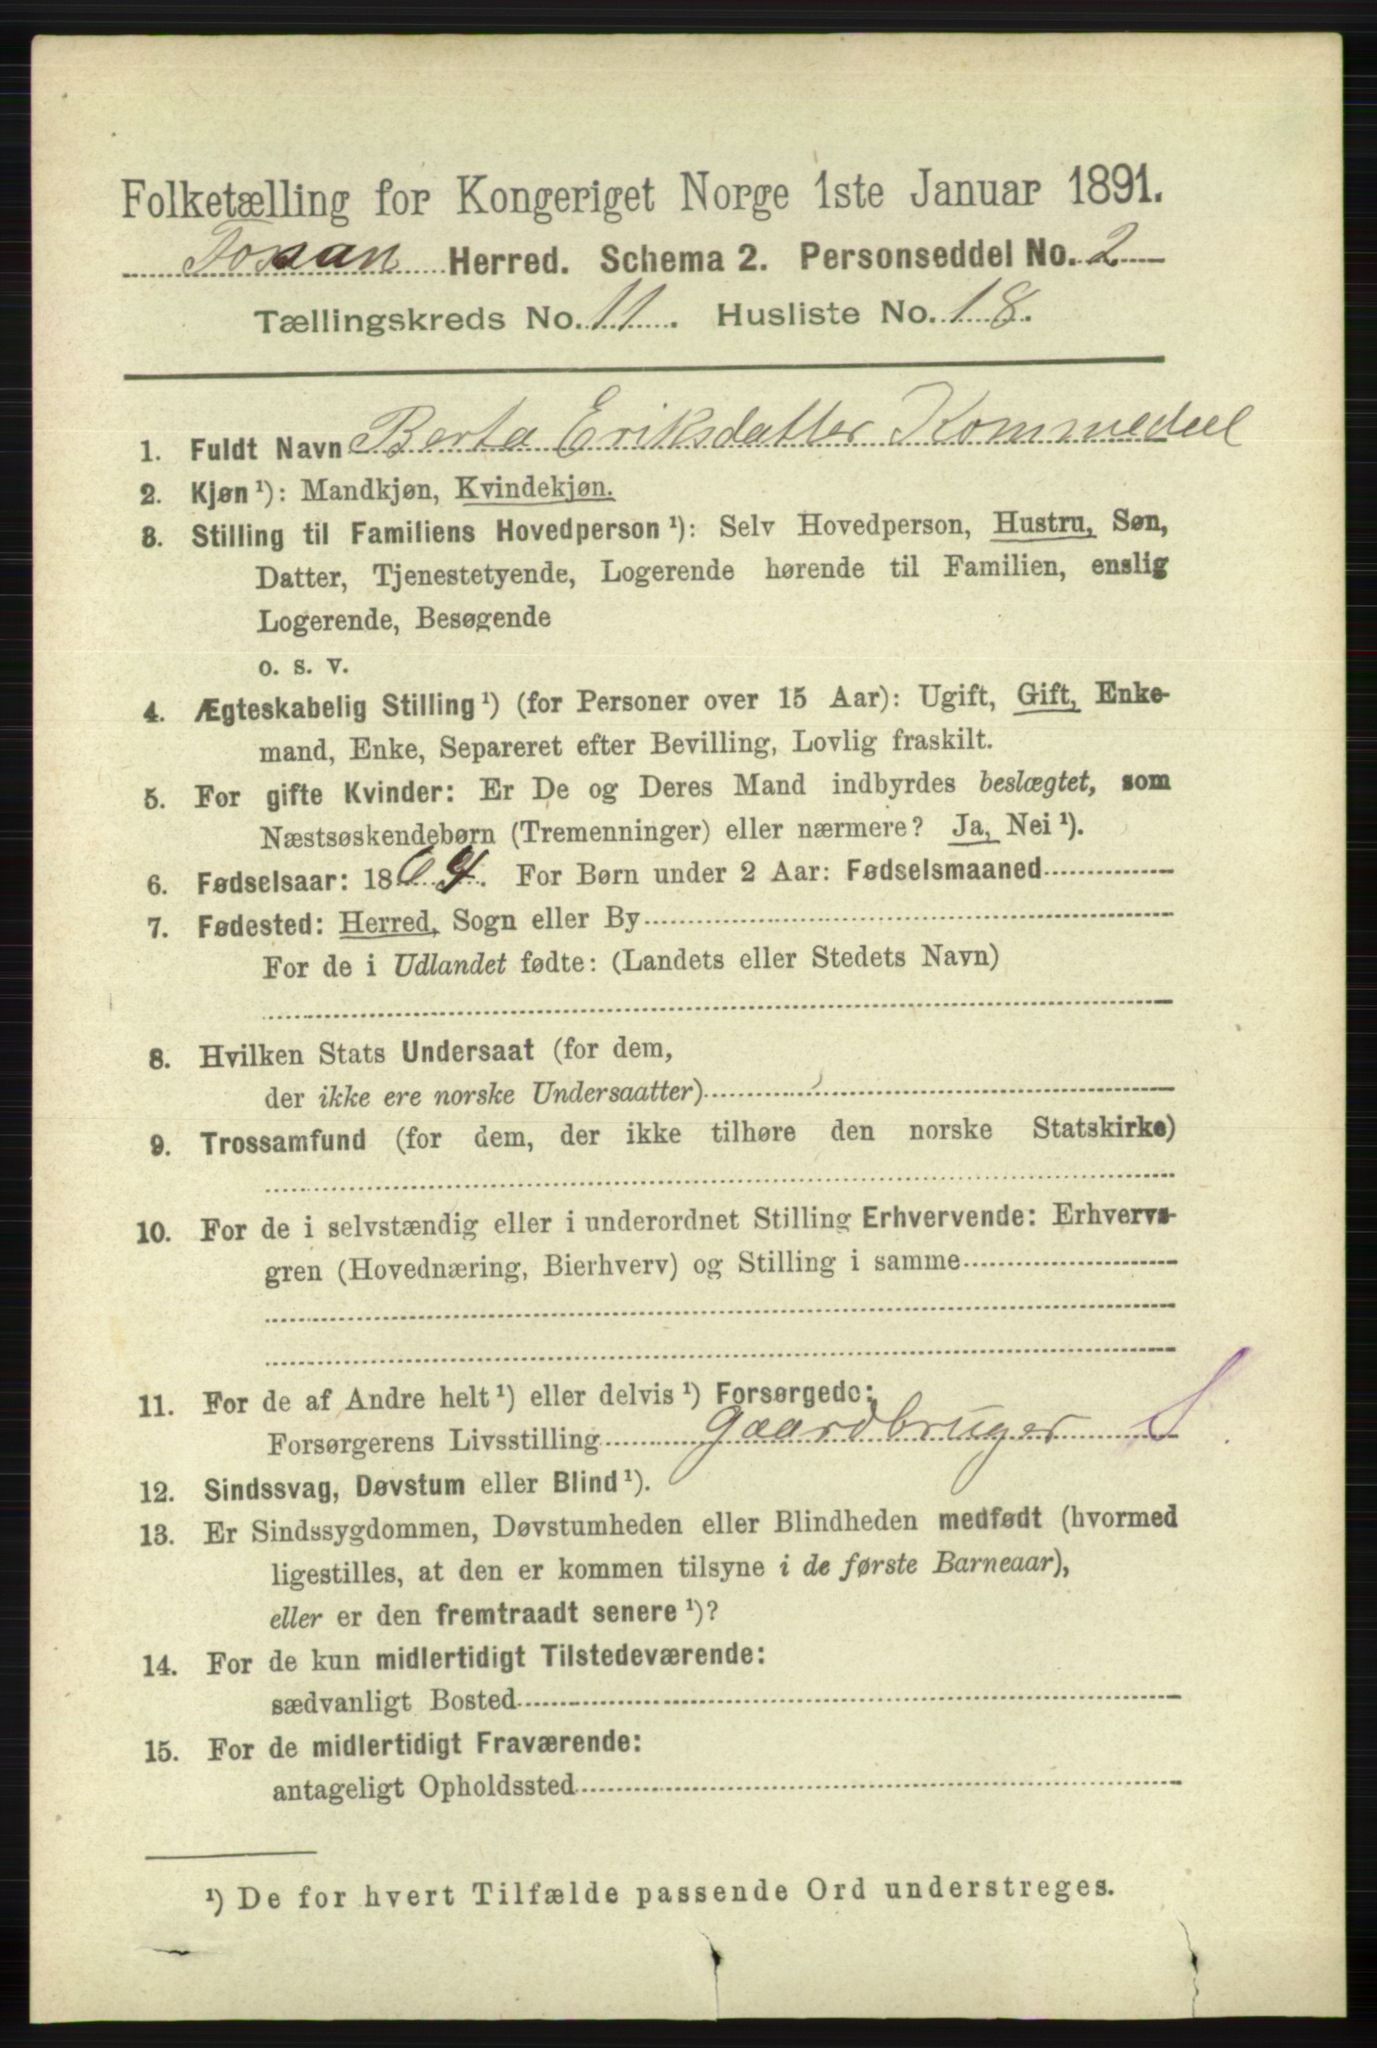 Folketælling for Kongeriget Norge 1ste Januar 1891.
Fossan Herred. Schema 2. Personseddel No. 2
Tællingskreds No. 11. Husliste No. 18.
1. Fuldt Navn Berta Eriksdatter Kommedeel
2. Kjøn ¹): Mandkjøn, Kvindekjøn.
3. Stilling til Familiens Hovedperson ¹): Selv Hovedperson, Hustru, Søn,
Datter, Tjenestetyende, Logerende hørende til Familien, enslig
Logerende, Besøgende
o. s. v.
4. Ægteskabelig Stilling ¹) (for Personer over 15 Aar): Ugift, Gift, Enke-
mand, Enke, Separeret efter Bevilling, Lovlig fraskilt.
5. For gifte Kvinder: Er De og Deres Mand indbyrdes beslægtet, som
Næstsøskendebørn (Tremenninger) eller nærmere? Ja, Nei ¹).
6. Fødselsaar: 1864. For Børn under 2 Aar: Fødselsmaaned
7. Fødested: Herred, Sogn eller By
For de i Udlandet fødte: (Landets eller Stedets Navn)
8. Hvilken Stats Undersaat (for dem,
der ikke ere norske Undersaatter)
9. Trossamfund (for dem, der ikke tilhøre den norske Statskirke)
10. For de i selvstændig eller i underordnet Stilling Erhvervende: Erhvervs-
gren (Hovednæring, Bierhverv) og Stilling i samme
11. For de af Andre helt ¹) eller delvis ¹) Forsørgede:
Forsørgerens Livsstilling Gaardbruger S
12. Sindssvag, Døvstum eller Blind ¹).
13. Er Sindssygdommen, Døvstumheden eller Blindheden medfødt (hvormed
ligestilles, at den er kommen tilsyne i de første Barneaar),
eller er den fremtraadt senere ¹)?
14. For de kun midlertidigt Tilstedeværende:
sædvanligt Bosted
15. For de midlertidigt Fraværende:
antageligt Opholdssted
¹) De for hvert Tilfælde passende Ord understreges.